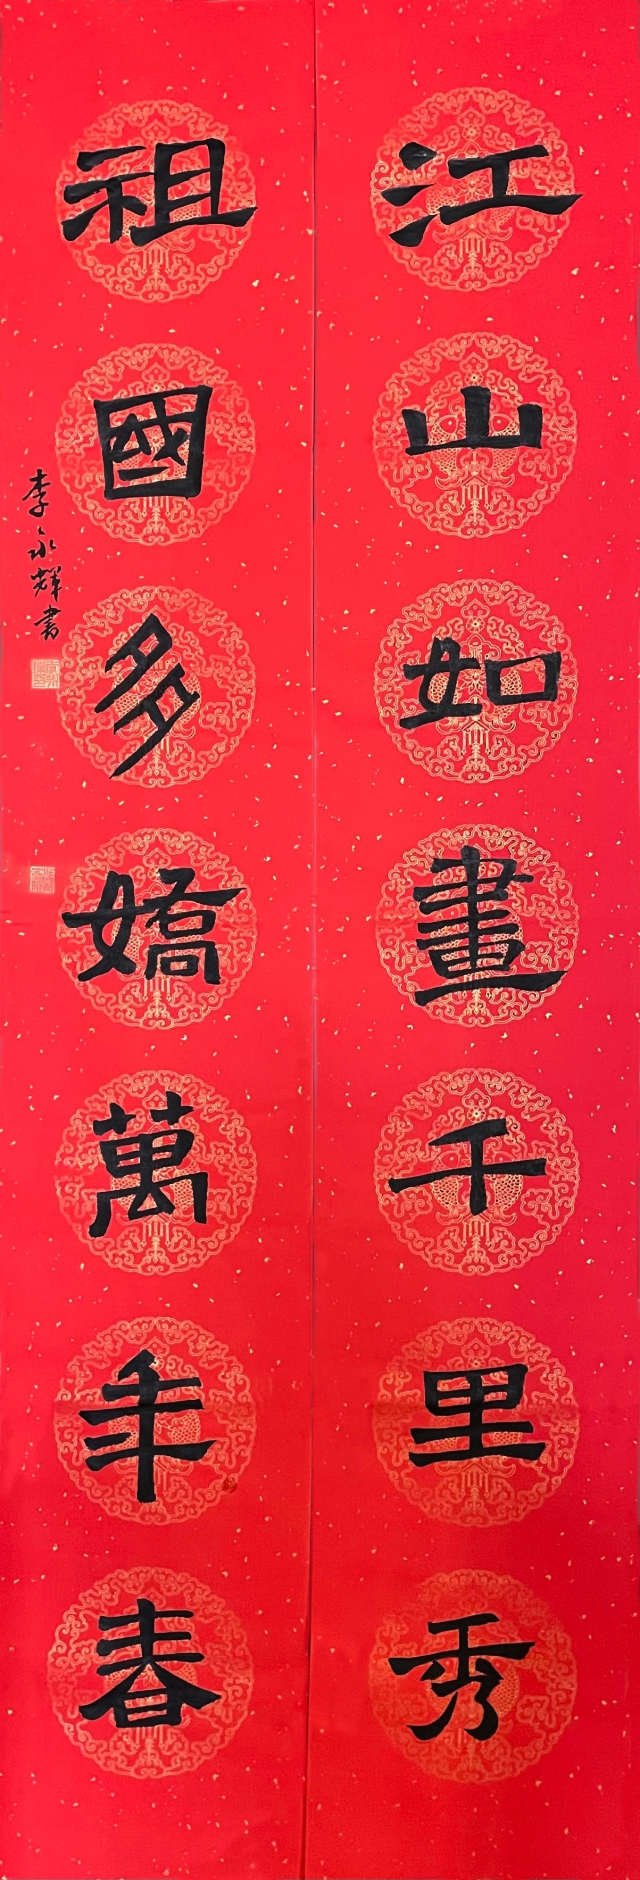 江山如畫千里秀
祖國多嬌萬年春
李永輝書